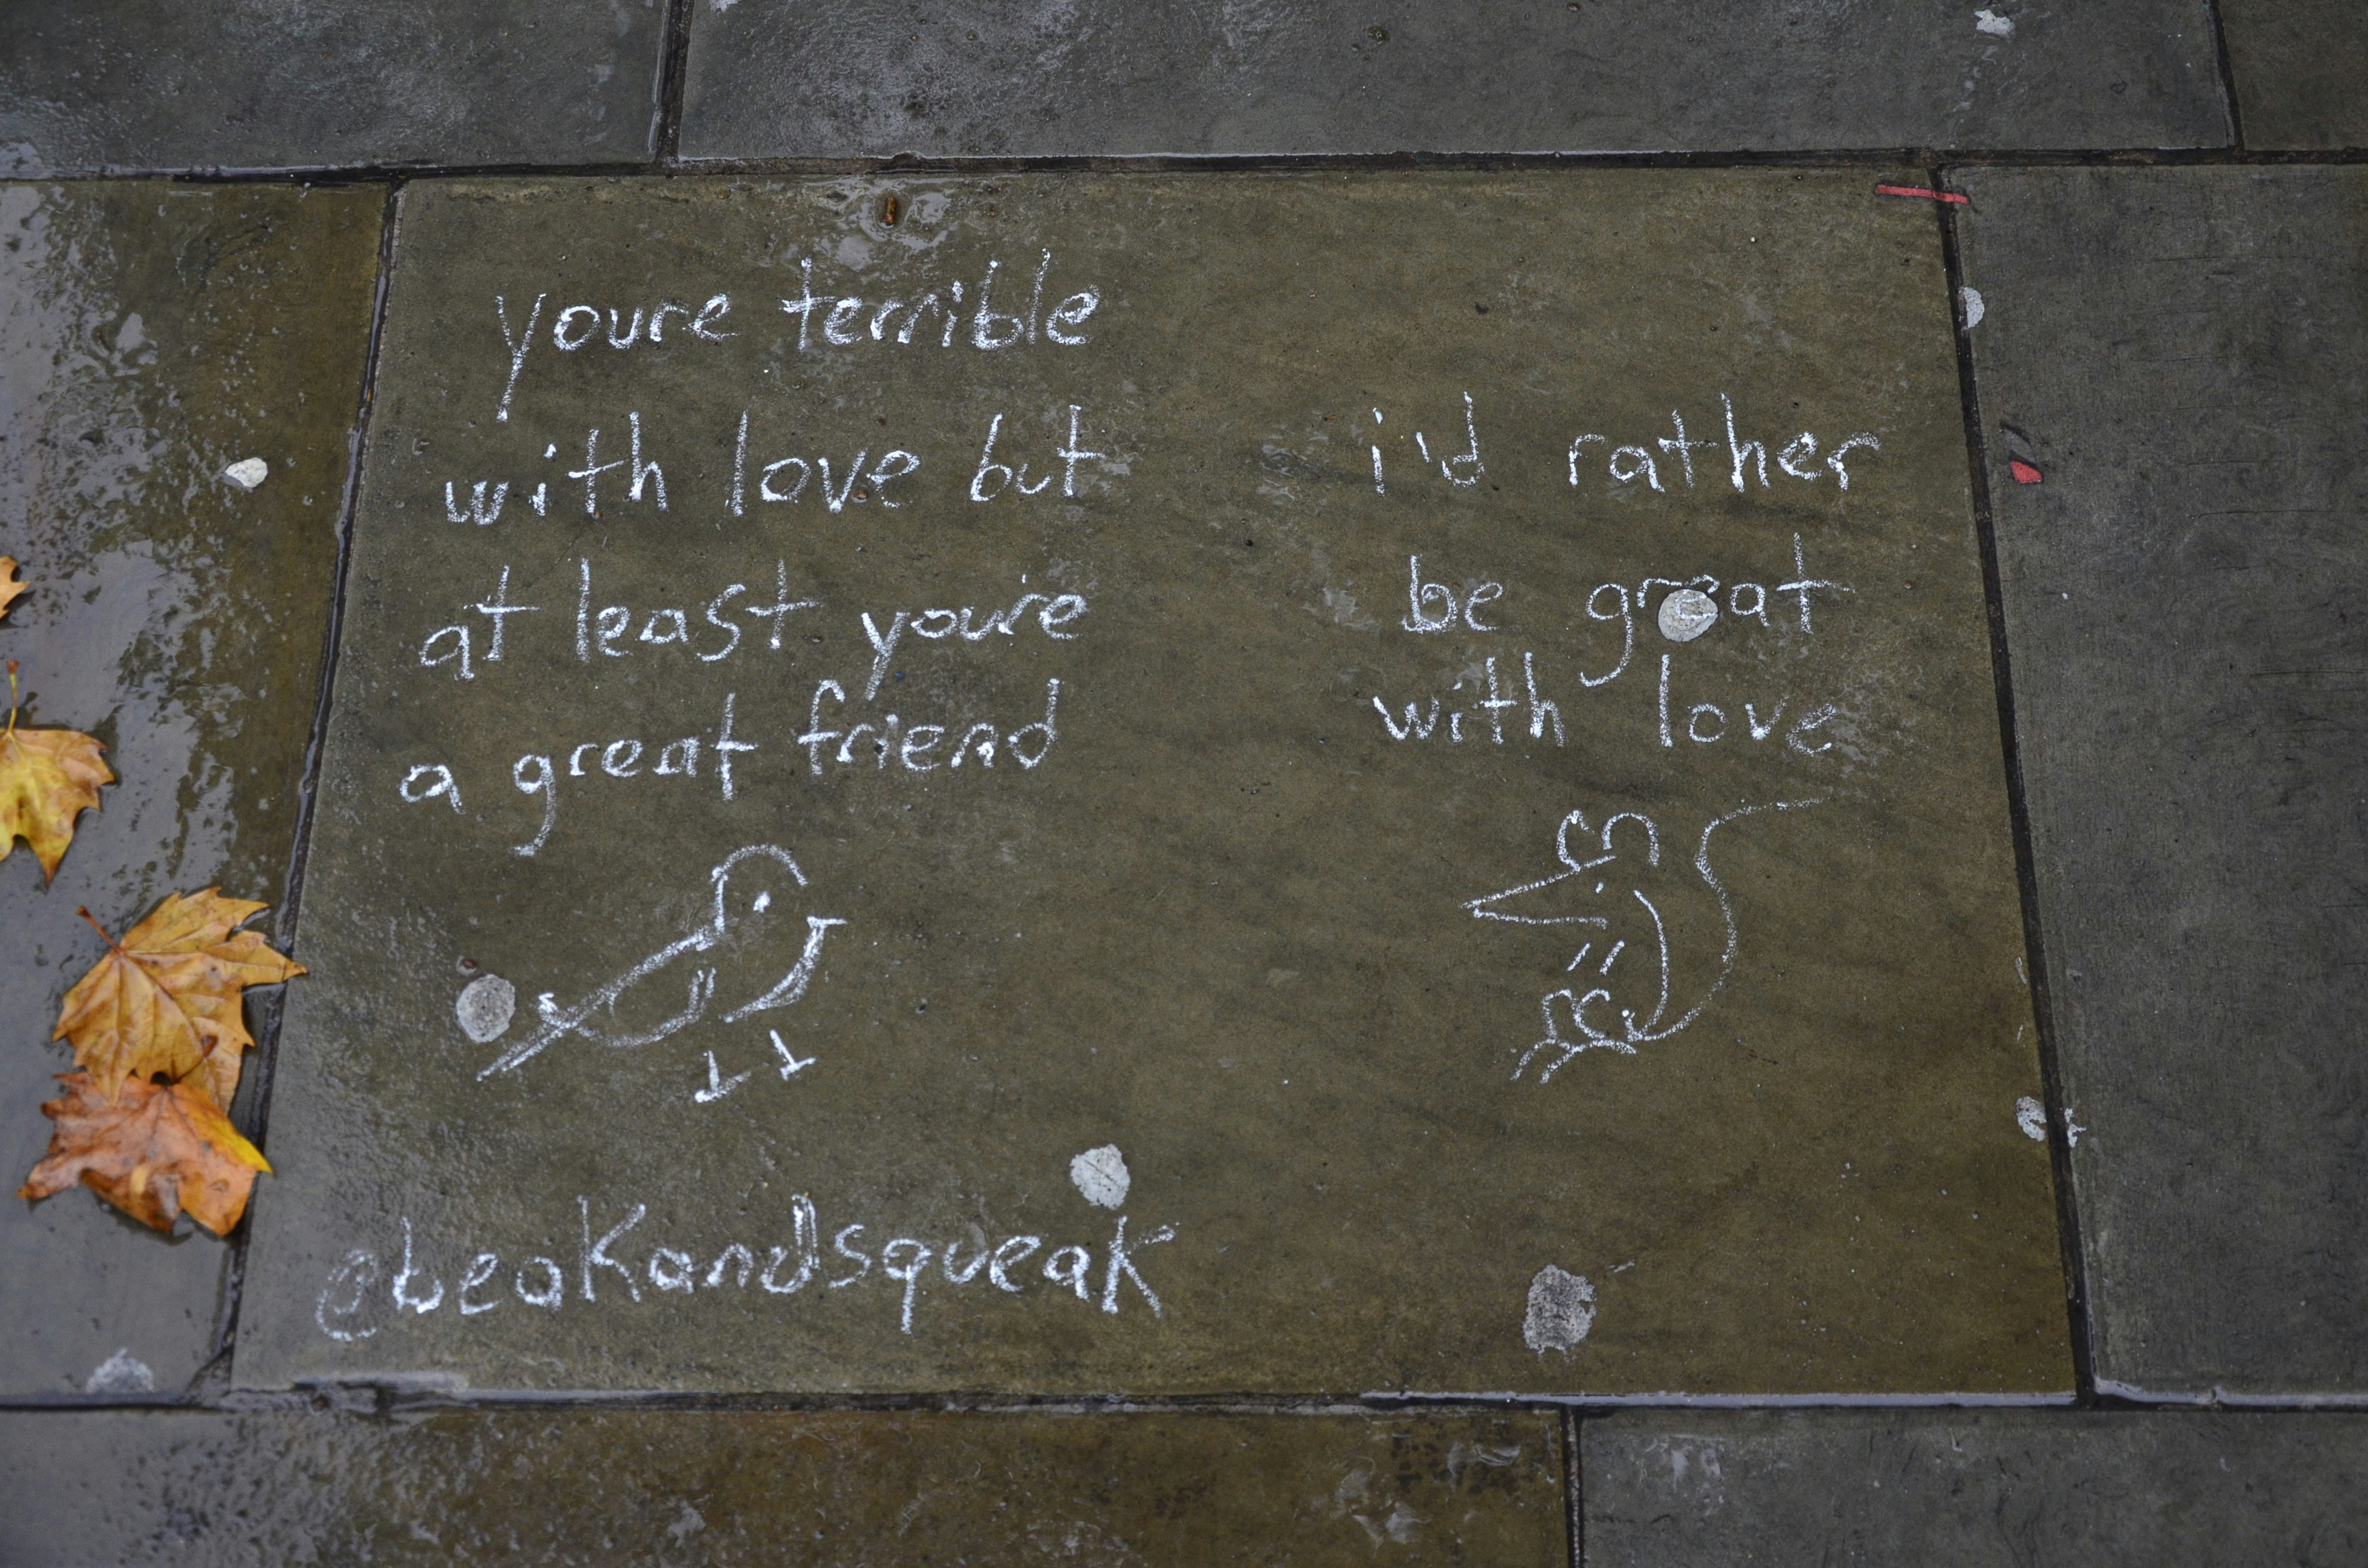 youre terrible
with love but
at least you're
a great friend
i'd rather
be great
with love
@beakandsqueak